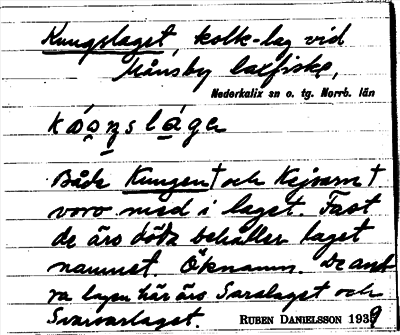 Kungslaget, kolk-lag vid
Månsby laxfiske,
Nederkalix sn o. tg. Norrb. län
Både Kungen † och Kejsarn †
voro med i laget. Fast
de äro döda behåller laget
namnet. Öknamn. De and
ra lagen här äro Saralaget och
Svarvarlaget. RUBEN DANIELSSON 1939